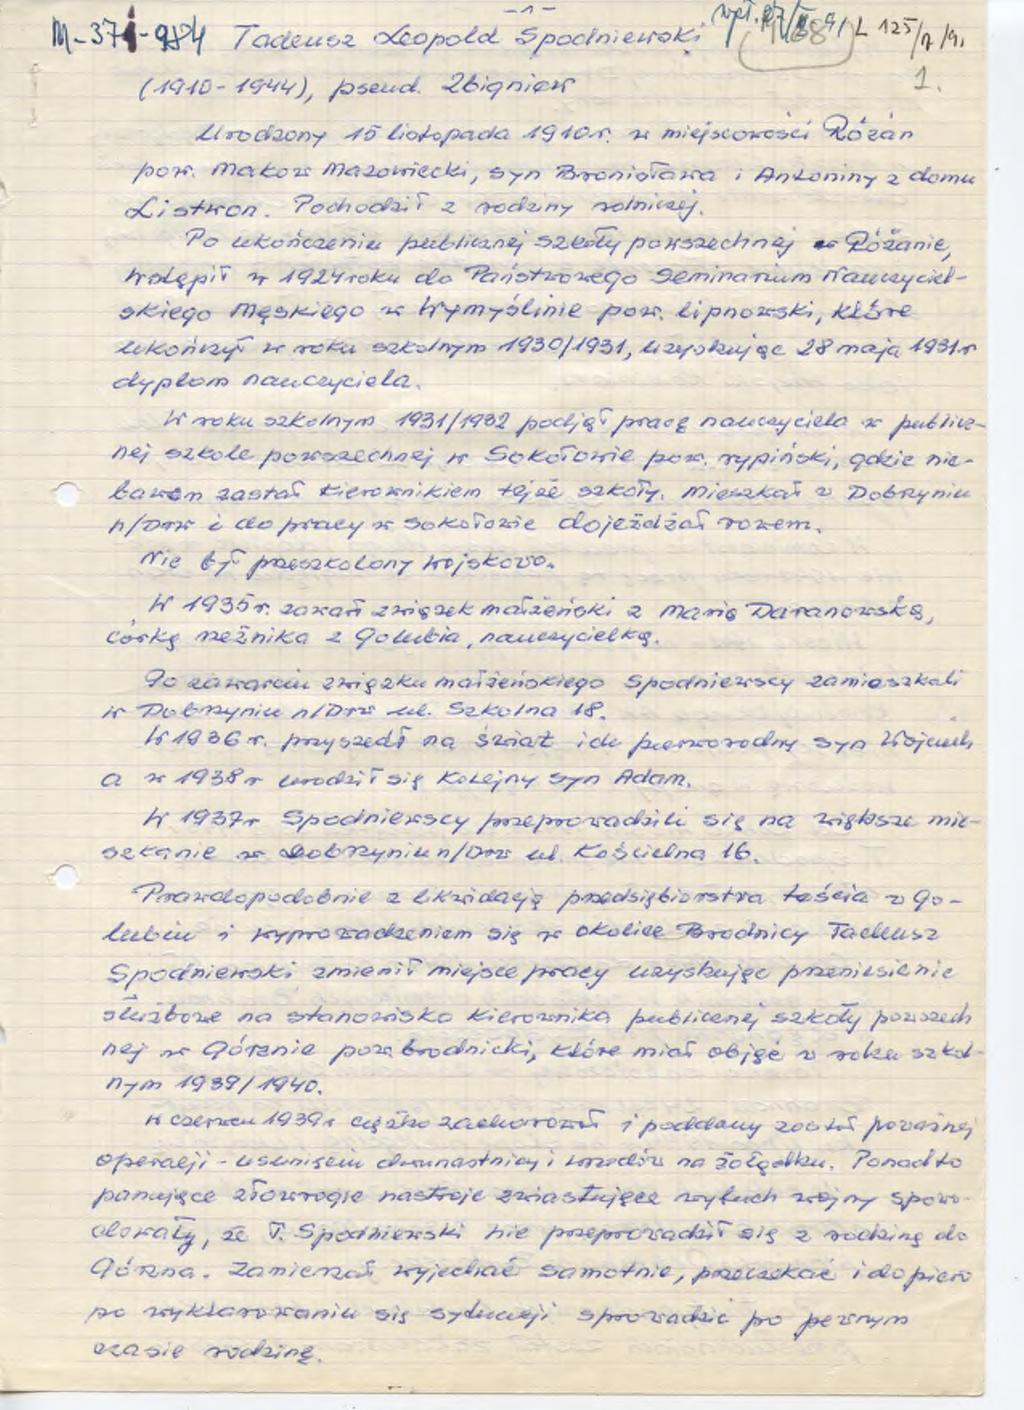 -1-
M-371-984 Tadeusz Leopold Spodniewski
L 125/
1.
(1910-1944), pseud. Zbigniew
Urodzony 15 listopada 1910 r. w miejscowości Różan
pow. Maków Mazowiecki, syn Bronisława i Antoniny z domu
Listwon. Pochodził z rodziny rolniczej.
Po ukończeniu publicznej szkoły powszechnej w Różanie,
wstąpił w 1924 roku do Państwowego Seminarium Nauczyciel-
skiego Męskiego w Wymyślinie pow. lipnowski, które
ukończył w roku szkolnym 1930/1931, uzyskując 28 maja 1931 r
dyplom nauczyciela.
W roku szkolnym 1931/1932 podjął pracę nauczyciela w publicz-
nej szkole powszechnej w Sokołowie pow. rypiński, gdzie nie-
bawem został kierownikiem tejże szkoły. Mieszkał w Dobrzyniu
n/Drw i do pracy w Sokołowie dojeżdżał rowem.
Nie był przeszkolony wojskowo.
W 1935 r. zawarł związek małżeński z Marią Daranowską,
córką rzeźnika z Golubia, nauczycielką.
Po zawarciu związku małżeńskiego Spodniewscy zamieszkali
w Dobrzyniu n/Drw ul. Szkolna 18.
W 1936 r. przyszedł na świat ich pierworodny syn Wojciech
a w 1938 r urodził się kolejny syn Adam.
W 1937 r Spodniewscy przeprowadzili się na większe mie-
szkanie w Dobrzyniu n/Drw ul. Kościelna 16.
Prawdopodobnie z likwidacją przedsiębiorstwa teścia w Go-
lubiu i wyprowadzeniem się w okolice Brodnicy Tadeusz
Spodniewski zmienił miejsce pracy uzyskując przeniesienie
służbowe na stanowisko kierownika publicznej szkoły powszech
nej w Górznie pow. brodnicki, które miał objąć w roku szkol-
nym 1939/1940.
W czerwcu 1939 r ciężko zachorował i poddany został poważnej
operacji - usunięciu dwunastnicy i wrzodów na żołądku. Ponadto
panujące złowrogie nastroje zwiastujące wybuch wojny spowo-
dowały, że T. Spodniewski nie przeprowadził się z rodziną do
Górzna. Zamierzał wyjechać samotnie, przeczekać i dopiero
po wyklarowaniu się sytuacji sprowadzić po pewnym
czasie rodzinę.